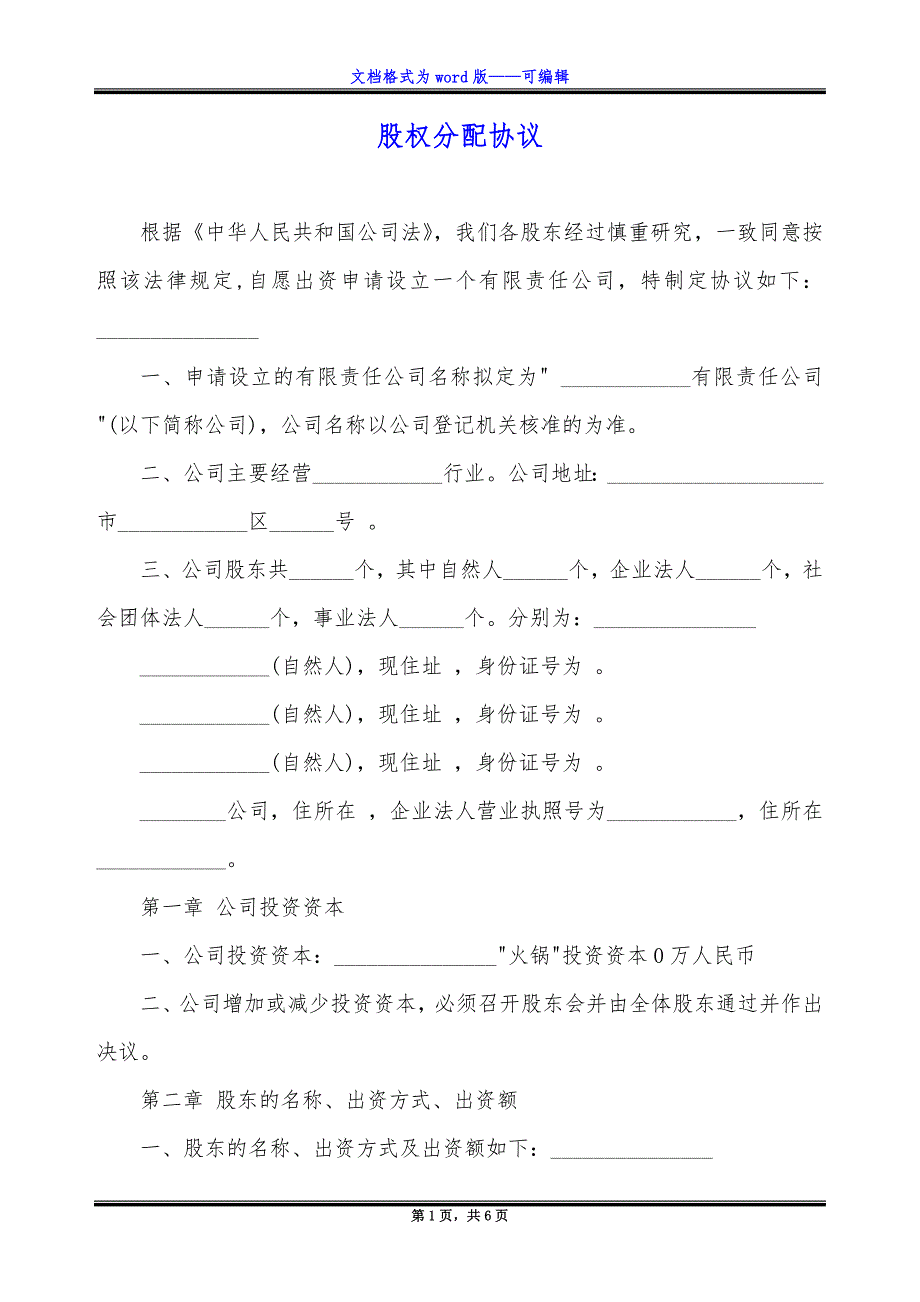 文档格式为 word 版——可编辑
股权分配协议
根据《中华人民共和国公司法》，我们各股东经过慎重研究，一致同意按
照该法律规定,自愿出资申请设立一个有限责任公司，特制定协议如下：
_______________
一、申请设立的有限责任公司名称拟定为" ____________有限责任公司
"(以下简称公司)，公司名称以公司登记机关核准的为准。
二、公司主要经营____________行业。公司地址：____________________
市____________区______号 。
三、公司股东共______个，其中自然人______个，企业法人______个，社
会团体法人______个，事业法人______个。分别为：_______________
____________(自然人)，现住址 ，身份证号为 。
____________(自然人)，现住址 ，身份证号为 。
____________(自然人)，现住址 ，身份证号为 。
________公司，住所在 ，企业法人营业执照号为____________，住所在
____________。
第一章 公司投资资本
一、公司投资资本：_______________"火锅"投资资本0万人民币
二、公司增加或减少投资资本，必须召开股东会并由全体股东通过并作出
决议。
第二章 股东的名称、出资方式、出资额
一、股东的名称、出资方式及出资额如下：_______________
第 1 页，共 6 页